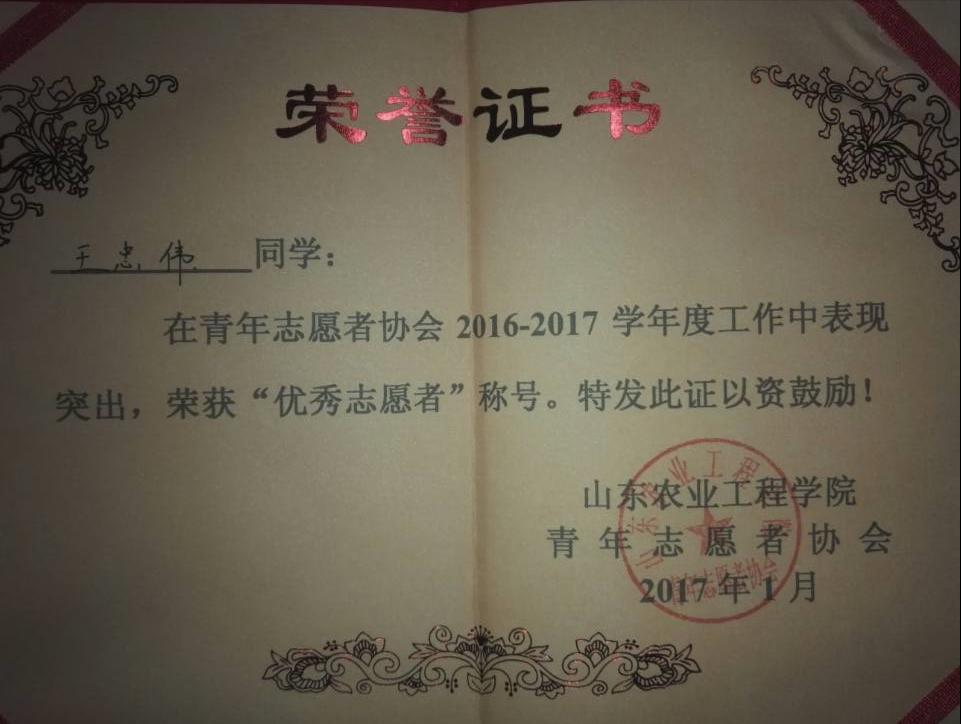 荣誉证书
王忠伟 同学：
在青年志愿者协会 2016-2017 学年度工作中表现
突出，荣获“优秀志愿者”称号。特发此证以资鼓励！
山东农业工程学院
青年志愿者协会
2017 年 1 月
山东农业工程学院
青年志愿者协会